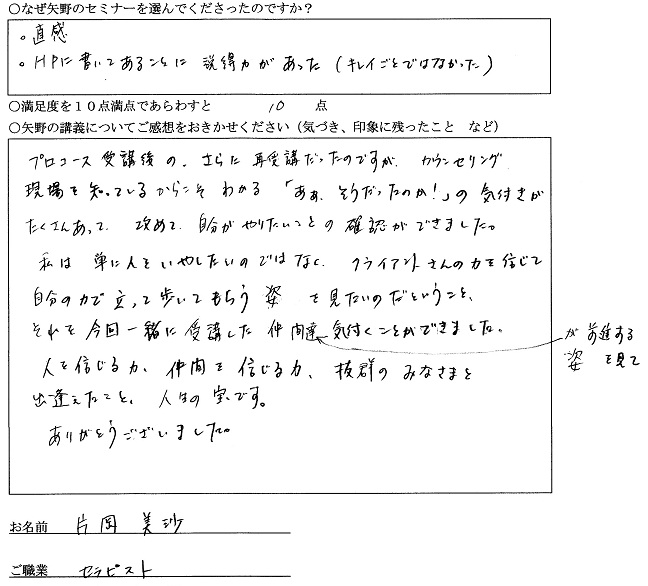 ○なぜ矢野のセミナーを選んでくださったのですか？
。直感
。HPに書いてあることに 説得力があった（キレイごとではなかった）
○満足度を１０点満点であらわすと 10 点
○矢野の講義についてご感想をおきかせください（気づき、印象に残ったこと など）
プロコース受講後の、さらに再受講だったのですが、カウンセリング
現場を知っているからこそ わかる「ああ、そうだったのか！」の気付きが
たくさんあって、改めて、自分がやりたいことの確認ができました。
私は 単に人をいやしたいのではなく、クライアントさんの力を信じて
自分の力で立って歩いてもらう姿を見たいのだということを、
それを今回一緒に受講した仲間達 気付くことができました。
が前進する
姿を見て
人を信じる力、仲間を信じる力、抜群のみなさまと
出逢えたこと、人生の宝です。
ありがとうございました。
お名前 片岡 美沙
ご職業 セラピスト